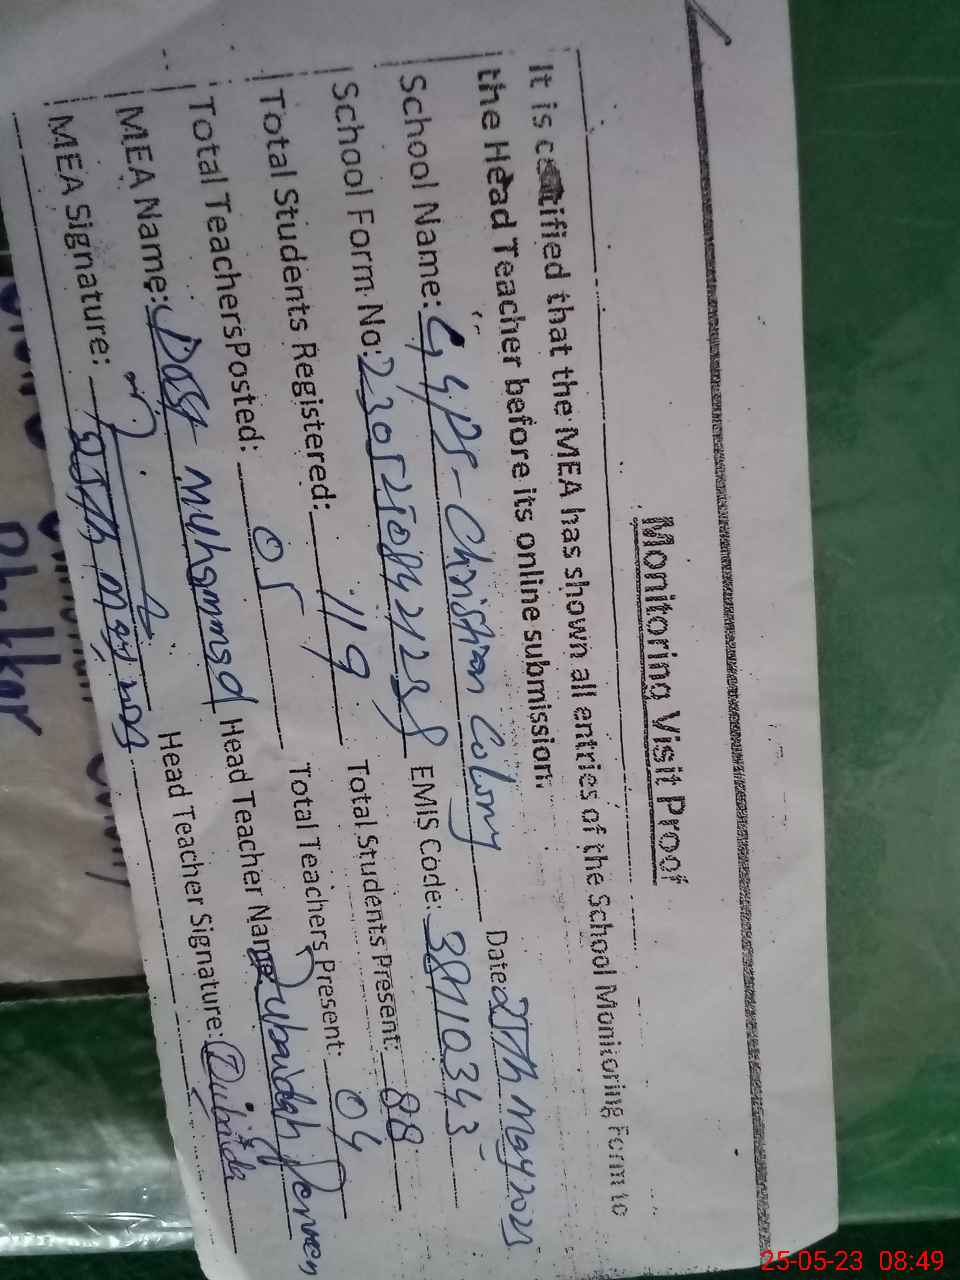 Monitoring Visit Proof
It is certified that the MEA has shown all entries of the School Monitoring Form to
the Head Teacher before its online submission.
School Name: GGPS-Christian Colony Dated 25Th May 2023
School Form No: EMIS Code: 38110343
Total Students Registered: 119 Total Students Present: 88
Total Teachers Posted: 05 Total Teachers Present: 04
MEA Name: Dost Muhammad Head Teacher Name: Zubaidah Perveen
MEA Signature: 25th May, 2023 Head Teacher Signature: Zubaida
25-05-23 08:49